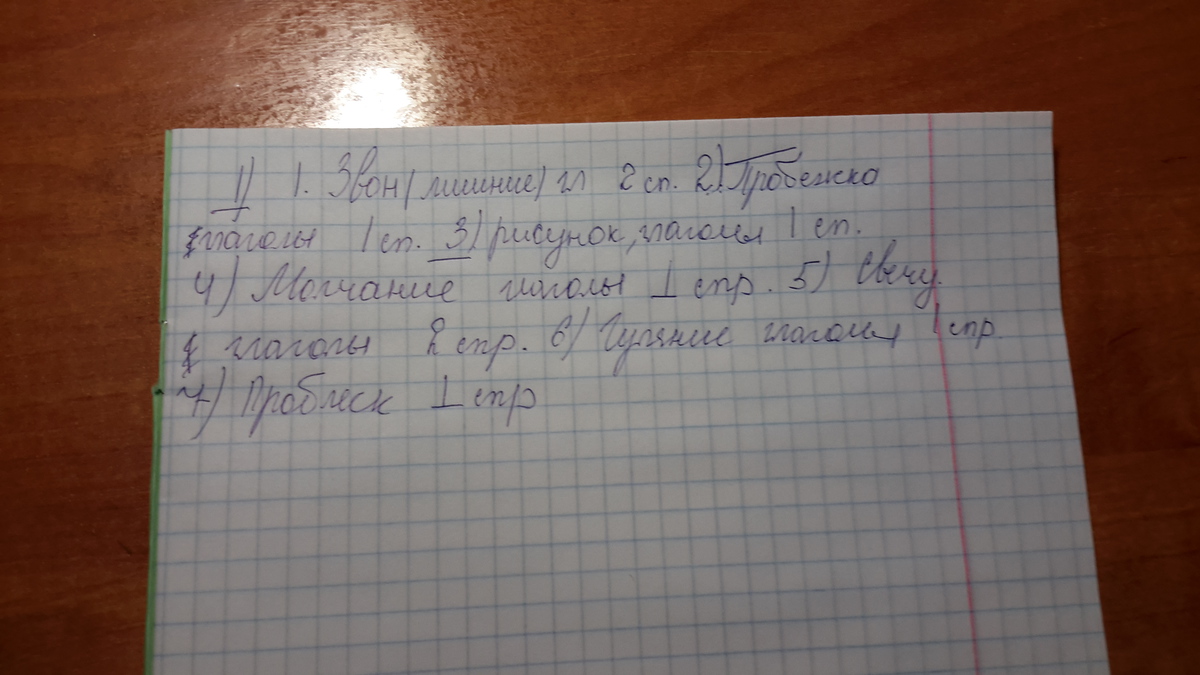 1) 1. Звон (лишние) гл 2 сп. 2) Пробежка
глаголы 1 сп. 3) рисунок, глаголы 1 сп.
4) Молчание глаголы 1 спр. 5) Свечу
глаголы 2 спр. 6) Гуляние глаголы 1 спр.
7) Проблеск 1 спр